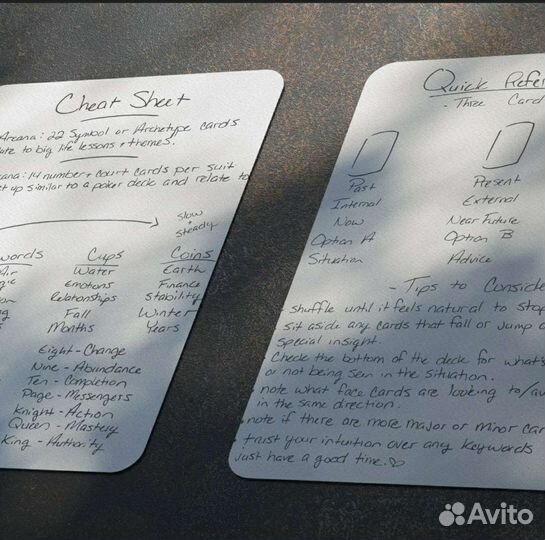 Cheat Sheet
Arcana: 22 Symbol or Archetype cards
to big life lessons + themes.
14 number + court cards per suit
up similar to a poker deck and relate to
slow
+
steady
Cups Coins
Water Earth
Emotions Finance
Relationships Stability
Fall Winter
Months Years
Eight - Change
Nine - Abundance
Ten - Completion
Page - Messengers
Knight - Action
Queen - Mastery
King - Authority
Quick
- Three Card
Past Present
Internal External
Now Near Future
Option A Option B
Situation Advice
- Tips to
• shuffle until it feels natural to stop
sit aside any cards that fall or jump
special insight.
• Check the bottom of the deck for what's
or not being seen in the situation.
• note what face cards are looking to/
in the same direction.
• note if there are more major or minor
• trust your intuition over any keywords
Just have a good time. ♡
Avito